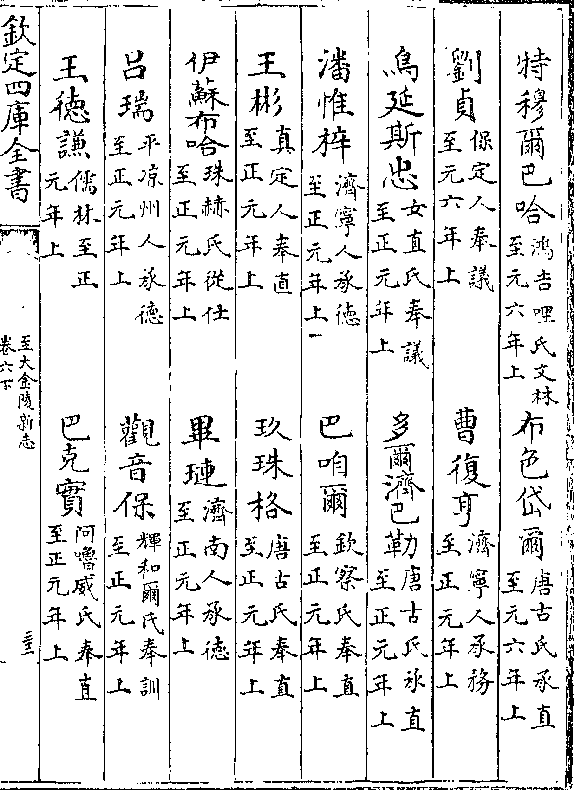 特穆爾巴哈鴻吉哩氏文林至元六年上 布色岱爾唐古氏承直至元六年上
劉貞保定人奉議至元六年上 曹復亨濟寧人承務至正元年上
烏延斯忠女直氏奉議至正元年上 多爾濟巴勒唐古氏承直至正元年上
潘惟梓濟寧人承德至正元年上 巴咱爾欽察氏奉直至正元年上
王彬真定人奉直至正元年上 玖珠格唐古氏奉直至正元年上
伊蘇布哈珠赫氏從仕至正元年上 畢璉濟南人承德至正元年上
呂瑞平凉州人承德至正元年上 觀音保輝和爾氏奉訓至正元年上
王德謙儒林至正元年上 巴克實阿嚕威氏奉直至正元年上
欽定四庫全書 至大金陵新志 卷六下